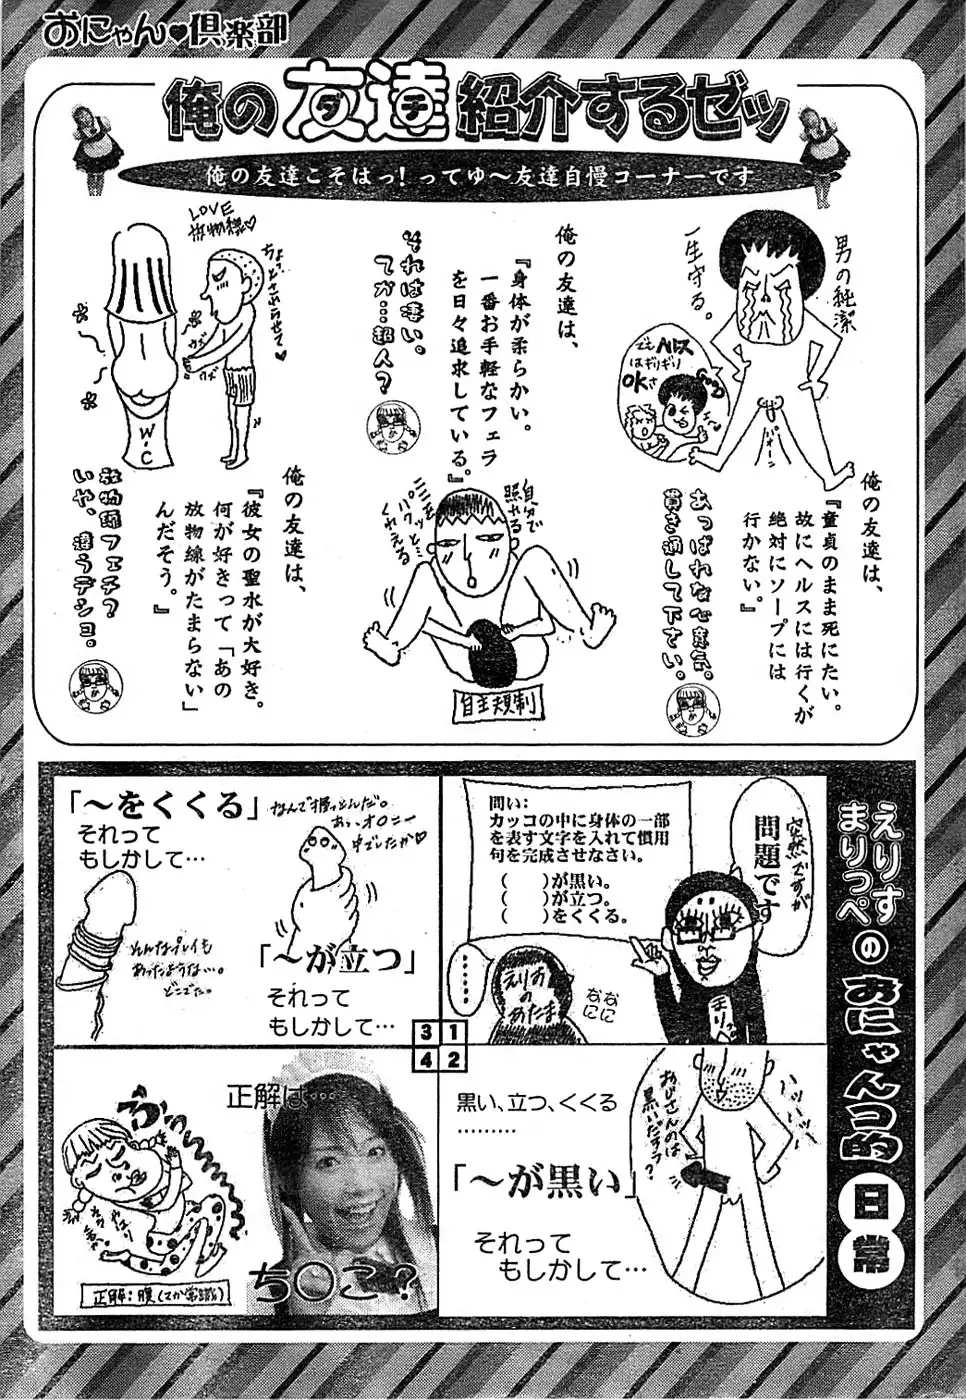 おにゃん♥倶楽部
俺の友達紹介するゼッ
ダチ
俺の友達こそはっ！ってゆ〜友達自慢コーナーです
俺の友達は、
『童貞のまま死にたい。
故にヘルスには行くが
絶対にソープには
行かない。』
あっぱれな心意気。
貫き通して下さい。
男の純潔
一生守る。
でもヘルス
はギリギリ
OKさ
俺の友達は、
『身体が柔らかい。
一番お手軽なフェラ
を日々追求している。』
それは凄い。
てか…超人？
自分で
照やる
くわえる
自主規制
俺の友達は、
『彼女の聖水が大好き。
何が好きって「あの
放物線がたまらない」
んだそう。』
放物線フェチ？
いや、違うデショ。
LOVE
放物線♡
W・C
えりす
まりっぺ
の
おにゃんつ的
日常
1
突然ですが
問題です
問い：
カッコの中に身体の一部
を表す文字を入れて慣用
句を完成させなさい。
（　）が黒い。
（　）が立つ。
（　）をくくる。
……
えりすの
あたま
なになに
まりっぺ
2
黒い、立つ、くくる
………
「〜が黒い」
それって
もしかして…
おじさんのは
黒いだすう？
3
「〜をくくる」
それって
もしかして…
そんなプレイも
あったような…。
どこでだ。
「〜が立つ」
それって
もしかして…
4
正解は…
ち〇こ？
正解：腹（てか常識）